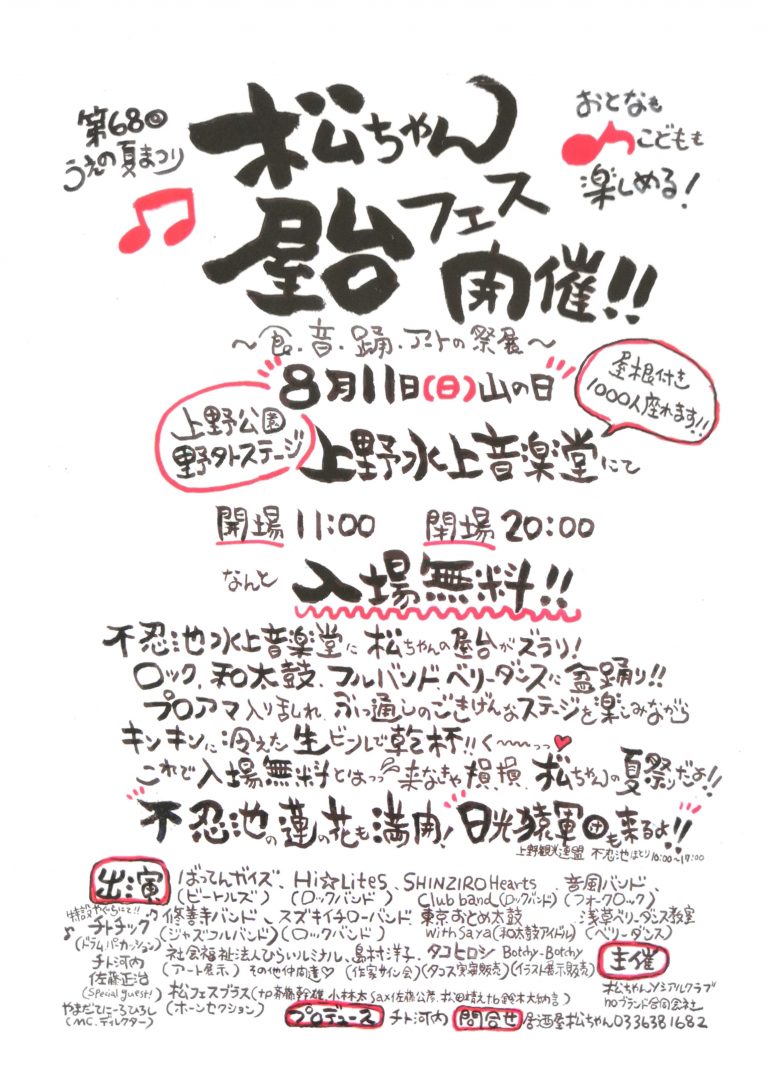 第68回
うえの夏まつり
松ちゃん
屋台フェス
開催!!
おとなも
こどもも
楽しめる!
〜食・音・踊・アートの祭展〜
8月11日(日)山の日
屋根付き
1000人座れます!!
上野公園
野外ステージ
上野水上音楽堂にて
開場 11:00 閉場 20:00
なんと 入場無料!!
不忍池水上音楽堂に 松ちゃんの屋台がズラリ!
ロック、和太鼓、フルバンド、ベリーダンスに 盆踊り!!
プロアマ入り乱れ、ぶっ通しのごきげんなステージを楽しみながら
キンキンに冷えた生ビールで乾杯!!く〜〜っっ
これで入場無料とはっっ 来なきゃ損損、松ちゃんの夏祭りだよ!!
不忍池の蓮の花も満開! 日光猿軍団も来るよ!!
上野観光連盟 不忍池ほとり
出演
ばってんガイズ、Hi☆Lites、SHINZIRO Hearts、音風バンド、
(ビートルズ) (ロックバンド) Club band(ロックバンド) (フォークロック)
特設やぐらにて!!
チトチック
(ドラム、パーカッション)
チト河内
佐藤正治
(Special guest!)
やまだてにーろひろし
(MC.ディレクター)
修善寺バンド、スズキイチローバンド、東京おとめ太鼓 浅草ベリーダンス教室
(ジャズフルバンド) (ロックバンド) with Saya(和太鼓アイドル) (ベリーダンス)
社会福祉法人ひらいルミナル、島村洋子、タコヒロシ Botchy-Botchy
(アート展示) その他仲間達 (作家サイン会) (タコス実演販売) (イラスト展示販売)
松フェスブラス
(ホーンセクション)
主催
松ちゃんYシアルクラブ
noブランド合同会社
プロデュース チト河内 問合せ 居酒屋松ちゃん0336381682